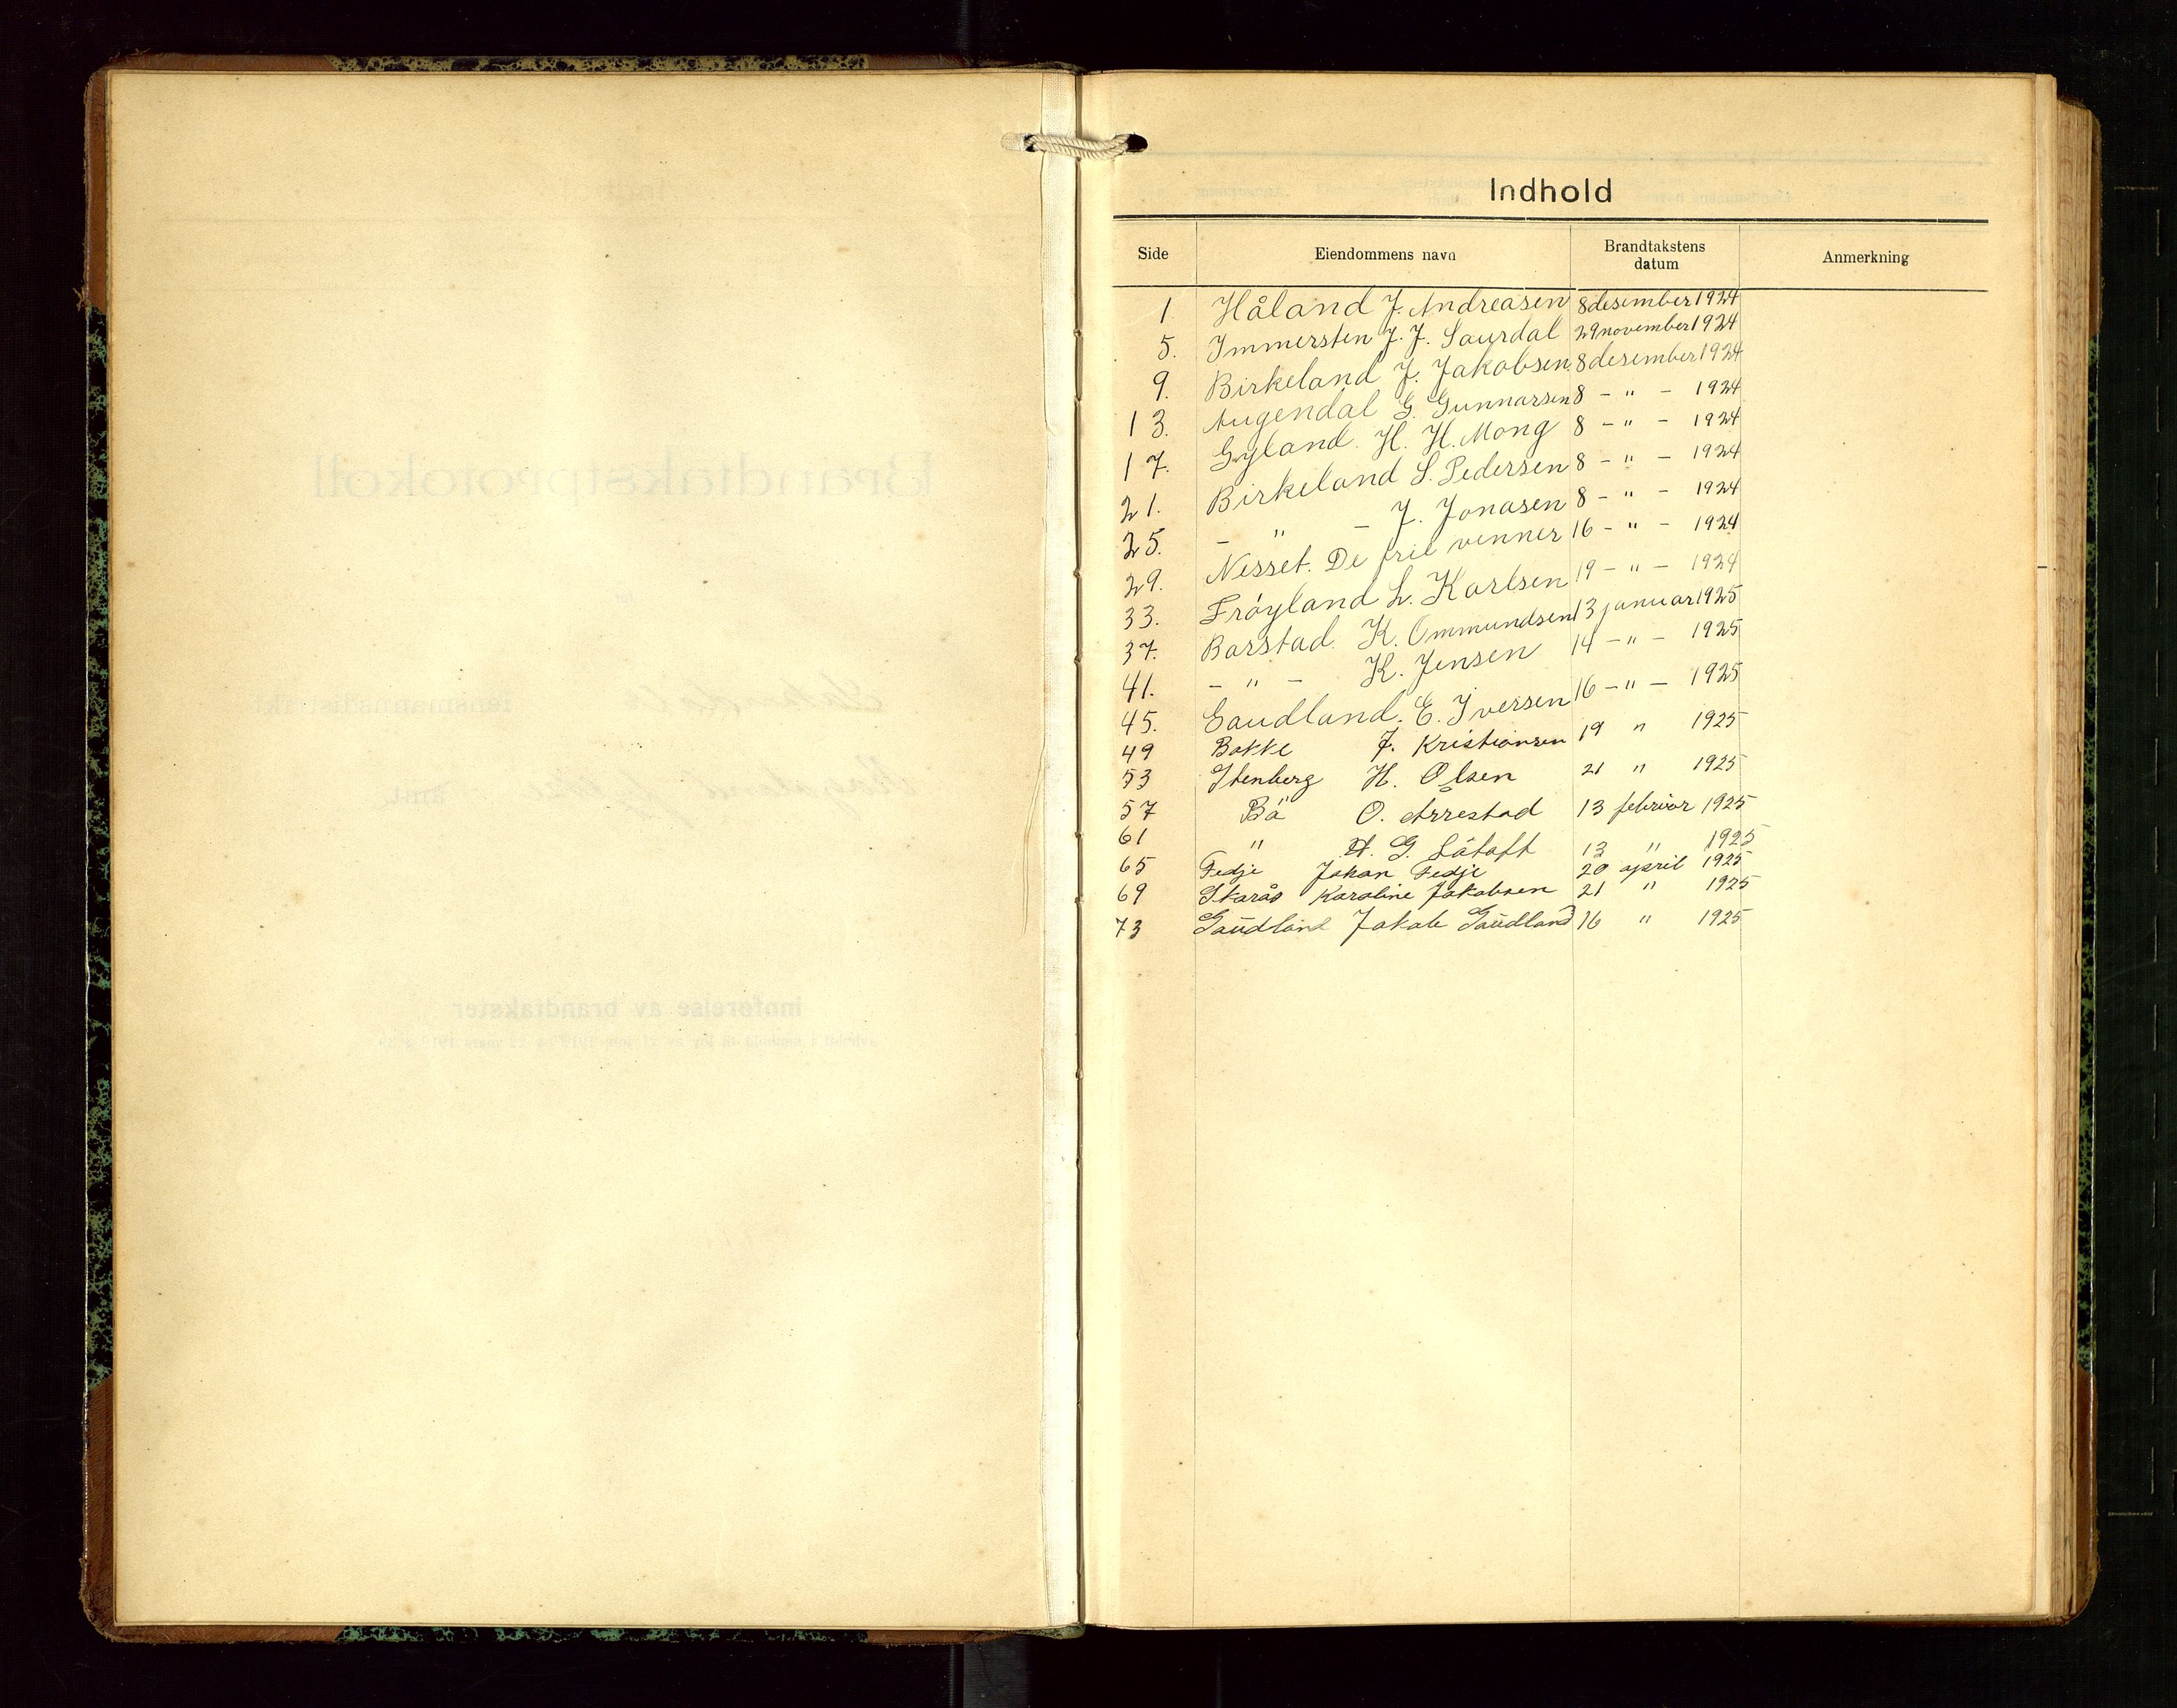 Indhold
Side Eiendommens navn Brandtakstens datum Anmerkning
1 Håland J. Andreasen 8 desember 1924
5. Immersten J. J. Saurdal 29 november 1924
9. Birkeland J. Jakobsen 8 desember 1924
13. Augendal G. Gunnarsen 8 - " - 1924
17. Gyland. H. H. Mong 8 - " - 1924
21. Birkeland S. Pedersen 8 - " - 1924
25. - " - J. Jonasen 8 - " - 1924
29. Nesset. De frie venner 16 - " - 1924
33. Frøyland L. Karlsen 19 - " - 1924
37. Barstad. K. Ommundsen 13 januar 1925
41. - " - K. Jensen 14 - " - 1925
45. Gaudland. E. Iversen 16 - " - 1925
49 Bakke J. Kristiansen 19 " 1925
53 Stenberg H. Olsen 21 " 1925
57 Bø O. Arrestad 13 februar 1925
61 " H. G. 13 " 1925
65 Fedje Johan Fedje 20 april 1925
69 Skarås Karoline Jakobsen 21 " 1925
73 Gaudland Jakob Gaudland 16 " 1925
Brandtakstprotokoll
for
lensmannsdistrikt
Rogaland fylke amt
innførelse av brandtakster